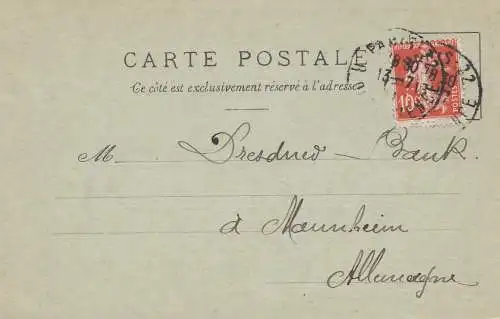 CARTE POSTALE
Ce côté est exclusivement réservé à l'adresse
M. Dresdner Bank.
à Mannheim
Allemagne
10
POSTES
PARIS 22